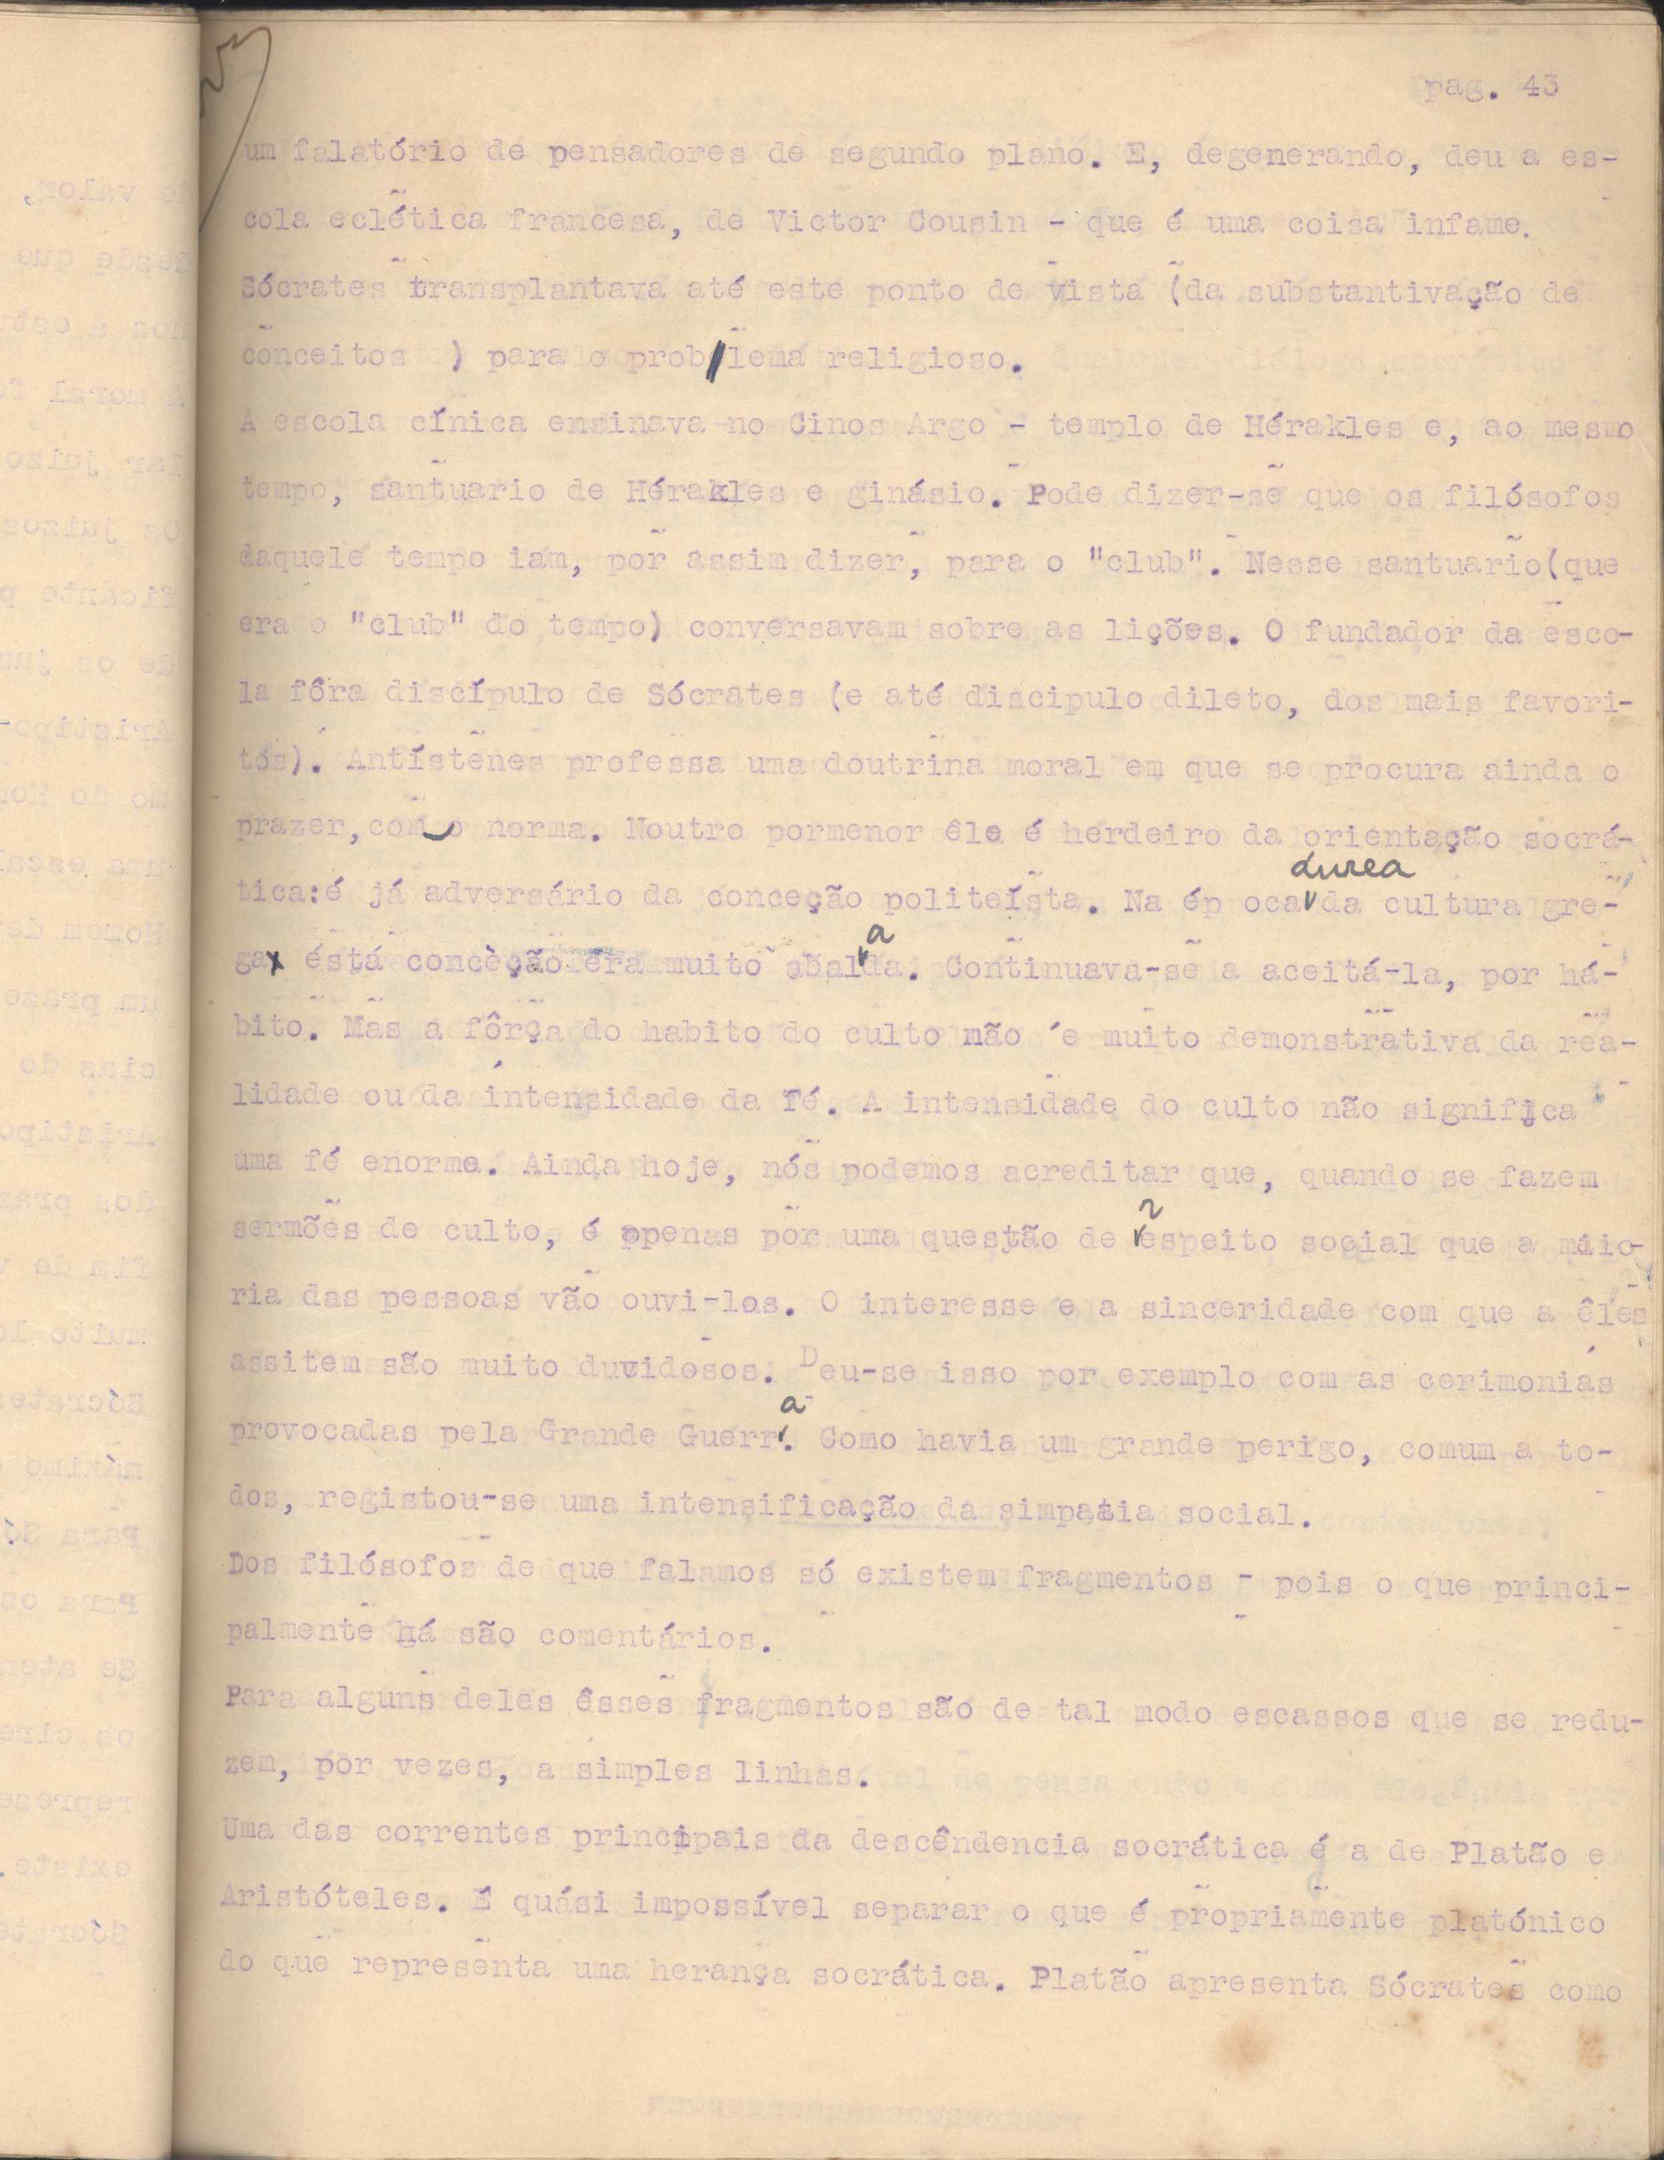 pag. 43
um falatório de pensadores de segundo plano. E, degenerando, deu a es-
cola eclética francesa, de Victor Cousin - que é uma coisa infame.
Sócrates transplantava até este ponto de vista (da substantivação de
conceitos ) para o problema religioso.
A escola cínica ensinava no Cinos Argo - templo de Hérakles e, ao mesmo
tempo, santuario de Hérakles e ginásio. Pode dizer-se que os filósofos
daquele tempo iam, por assim dizer, para o "club". Nesse santuario(que
era o "club" do tempo) conversavam sobre as lições. O fundador da esco-
la fôra discípulo de Sócrates (e até discipulo dileto, dos mais favori-
tos). Antístenes professa uma doutrina moral em que se procura ainda o
prazer,como norma. Noutro pormenor êle é herdeiro da orientação socrá-
tica:é já adversário da conceção politeísta. Na época áurea da cultura gre-
ga esta conceção era muito abalada. Continuava-se a aceitá-la, por há-
bito. Mas a fôrça do habito do culto mão ´e muito demonstrativa da rea-
lidade ou da intensidade da fé. A intensidade do culto não significa
uma fé enorme. Ainda hoje, nós podemos acreditar que, quando se fazem
sermões de culto, é apenas por uma questão de respeito social que a maio-
ria das pessoas vão ouvi-los. O interesse e a sinceridade com que a êles
assitem são muito duvidosos. Deu-se isso por exemplo com as cerimonias
provocadas pela Grande Guerra. Como havia um grande perigo, comum a to-
dos, registou-se uma intensificação da simpatia social.
Dos filósofos de que falamos só existem fragmentos - pois o que princi-
palmente há são comentários.
Para alguns deles êsses fragmentos são de tal modo escassos que se redu-
zem, por vezes, a simples linhas.
Uma das correntes principais da descêndencia socrática é a de Platão e
Aristóteles. É quási impossível separar o que é propriamente platónico
do que representa uma herança socrática. Platão apresenta Sócrates como